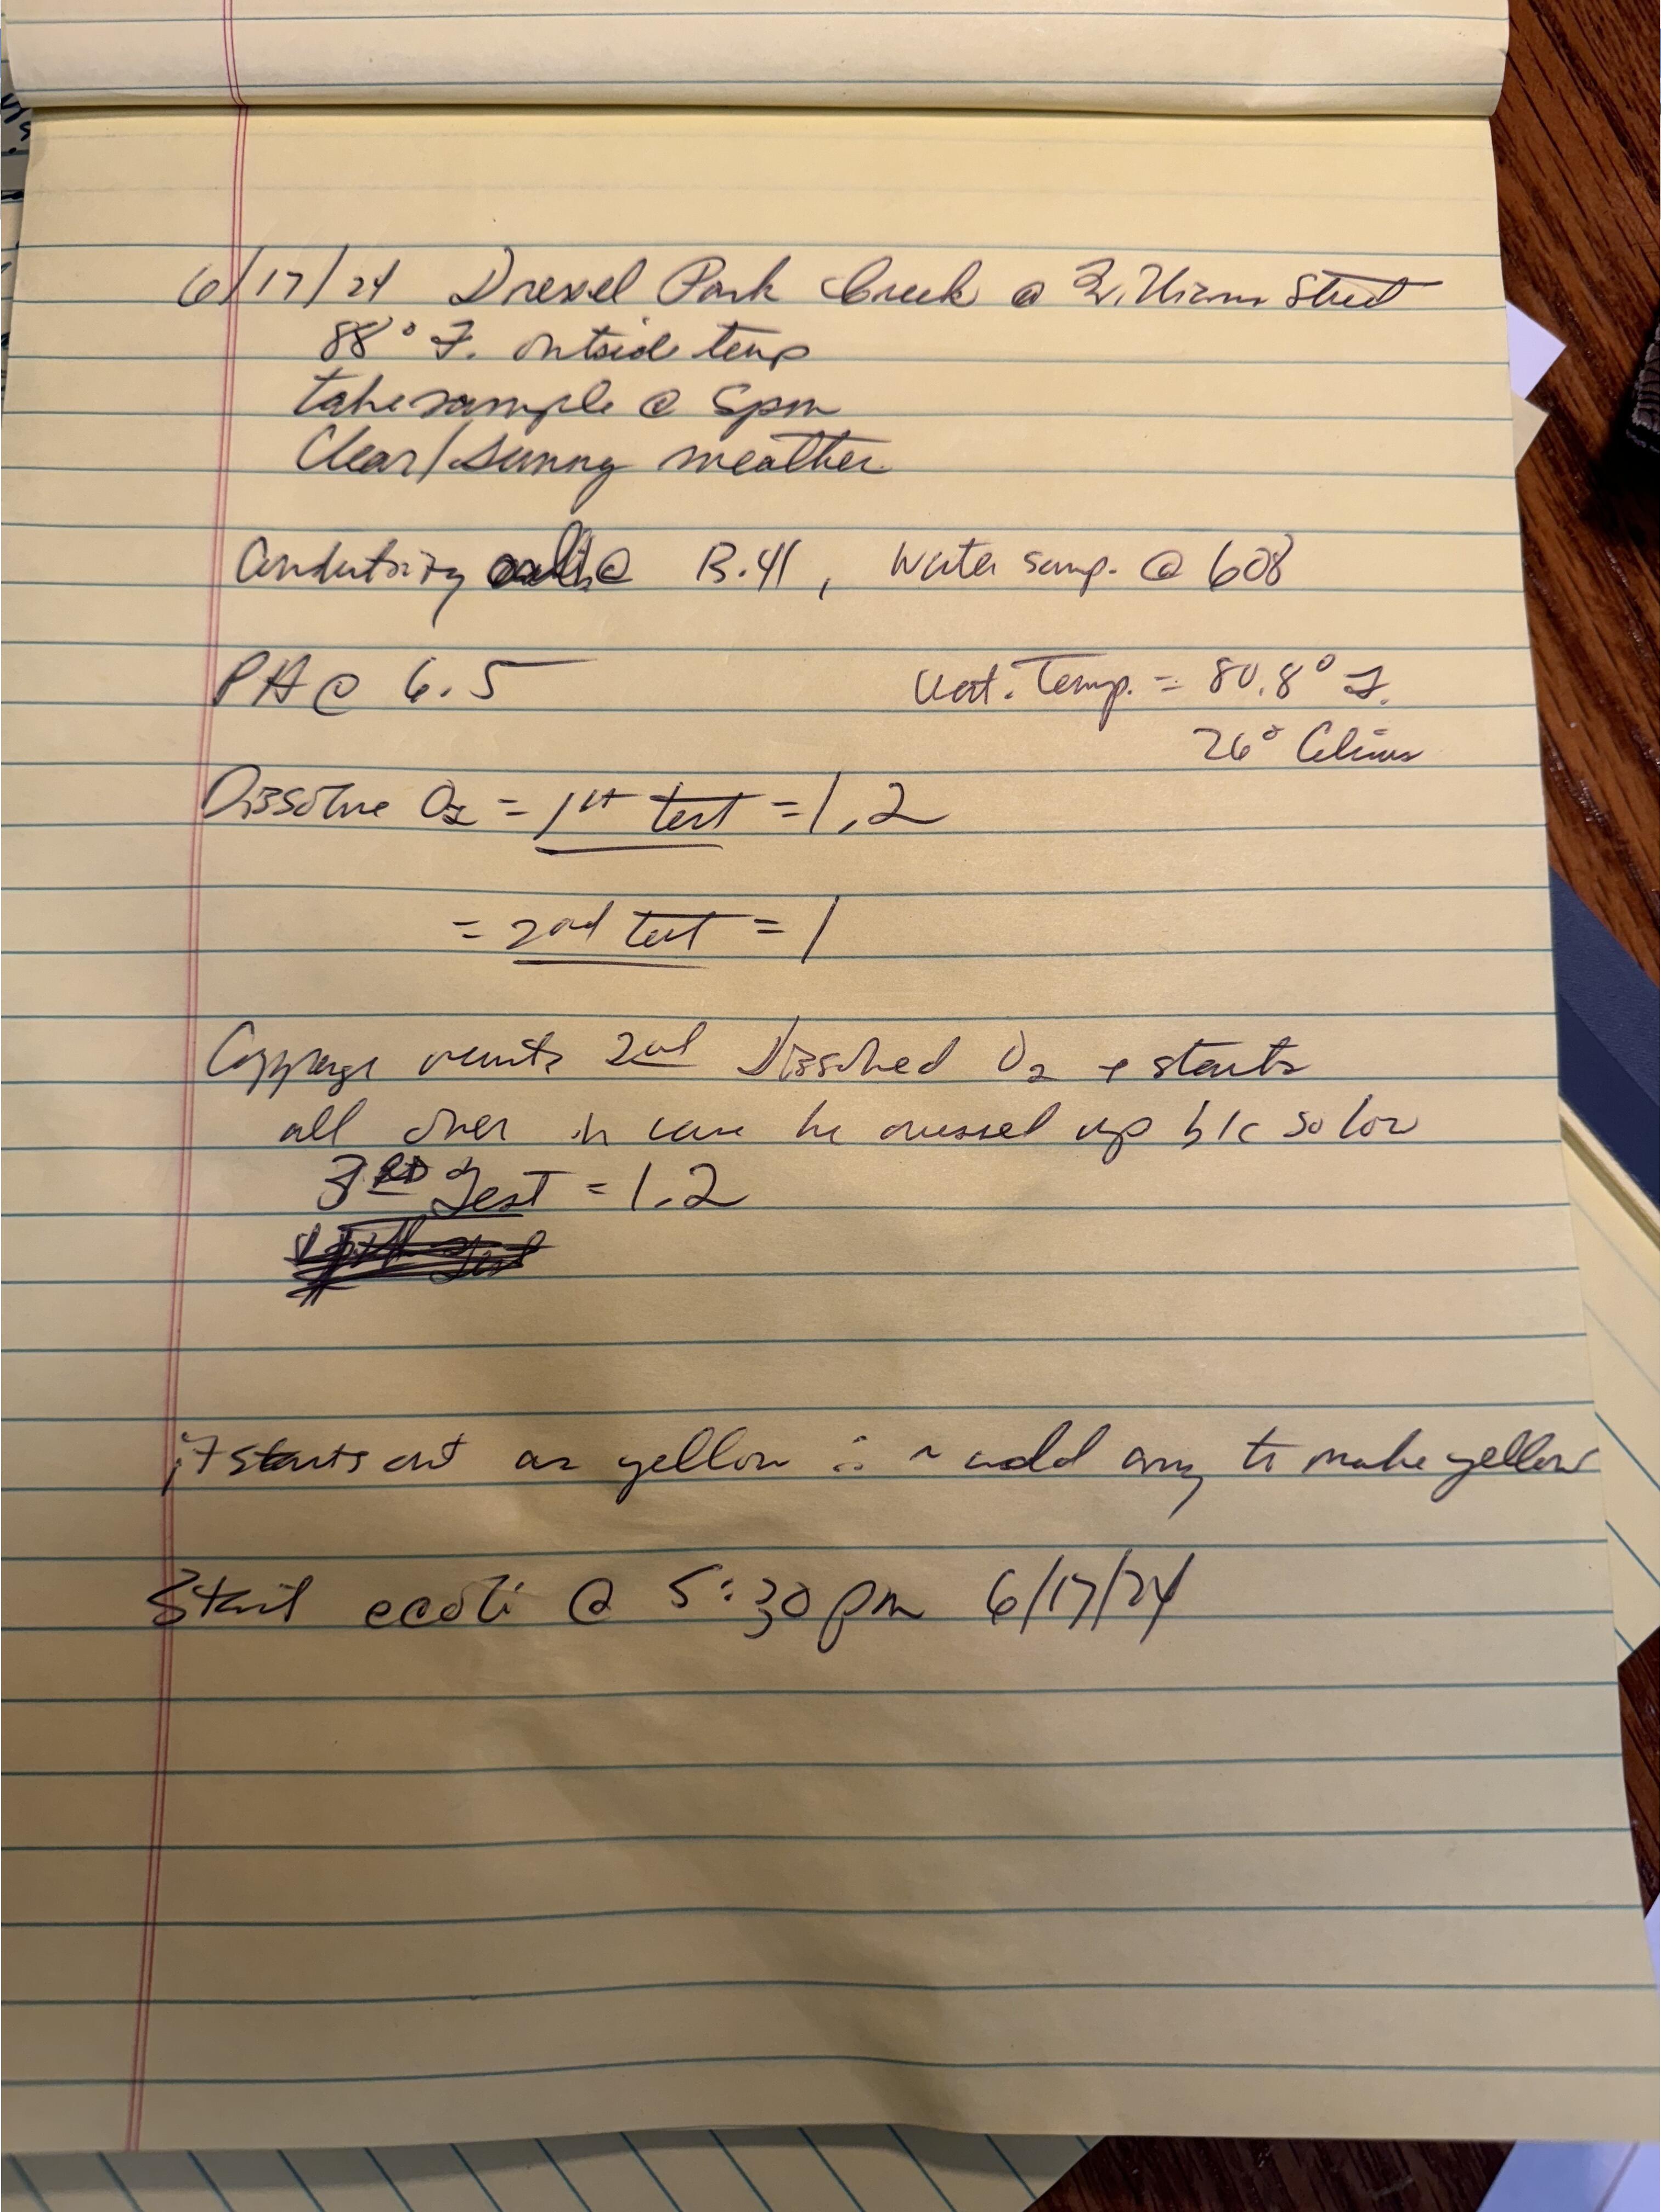 6/17/24 Drexel Park Creek @ Williams Street
88° F. outside temp
take sample @ 5pm
Clear/Sunny weather
@ 13.41, Water samp. @ 608
PH @ 6.5 Wat. Temp. = 80.8° F.
26° Celsius
Dissolve O2 = 1st test = 1.2
= 2nd test = 1
2nd Dissolved O2 + starts
all over in case he messed up b/c so low
3RD Test = 1.2
it starts out as yellow add any to make yellow
Start ecoli @ 5:30 pm 6/17/24